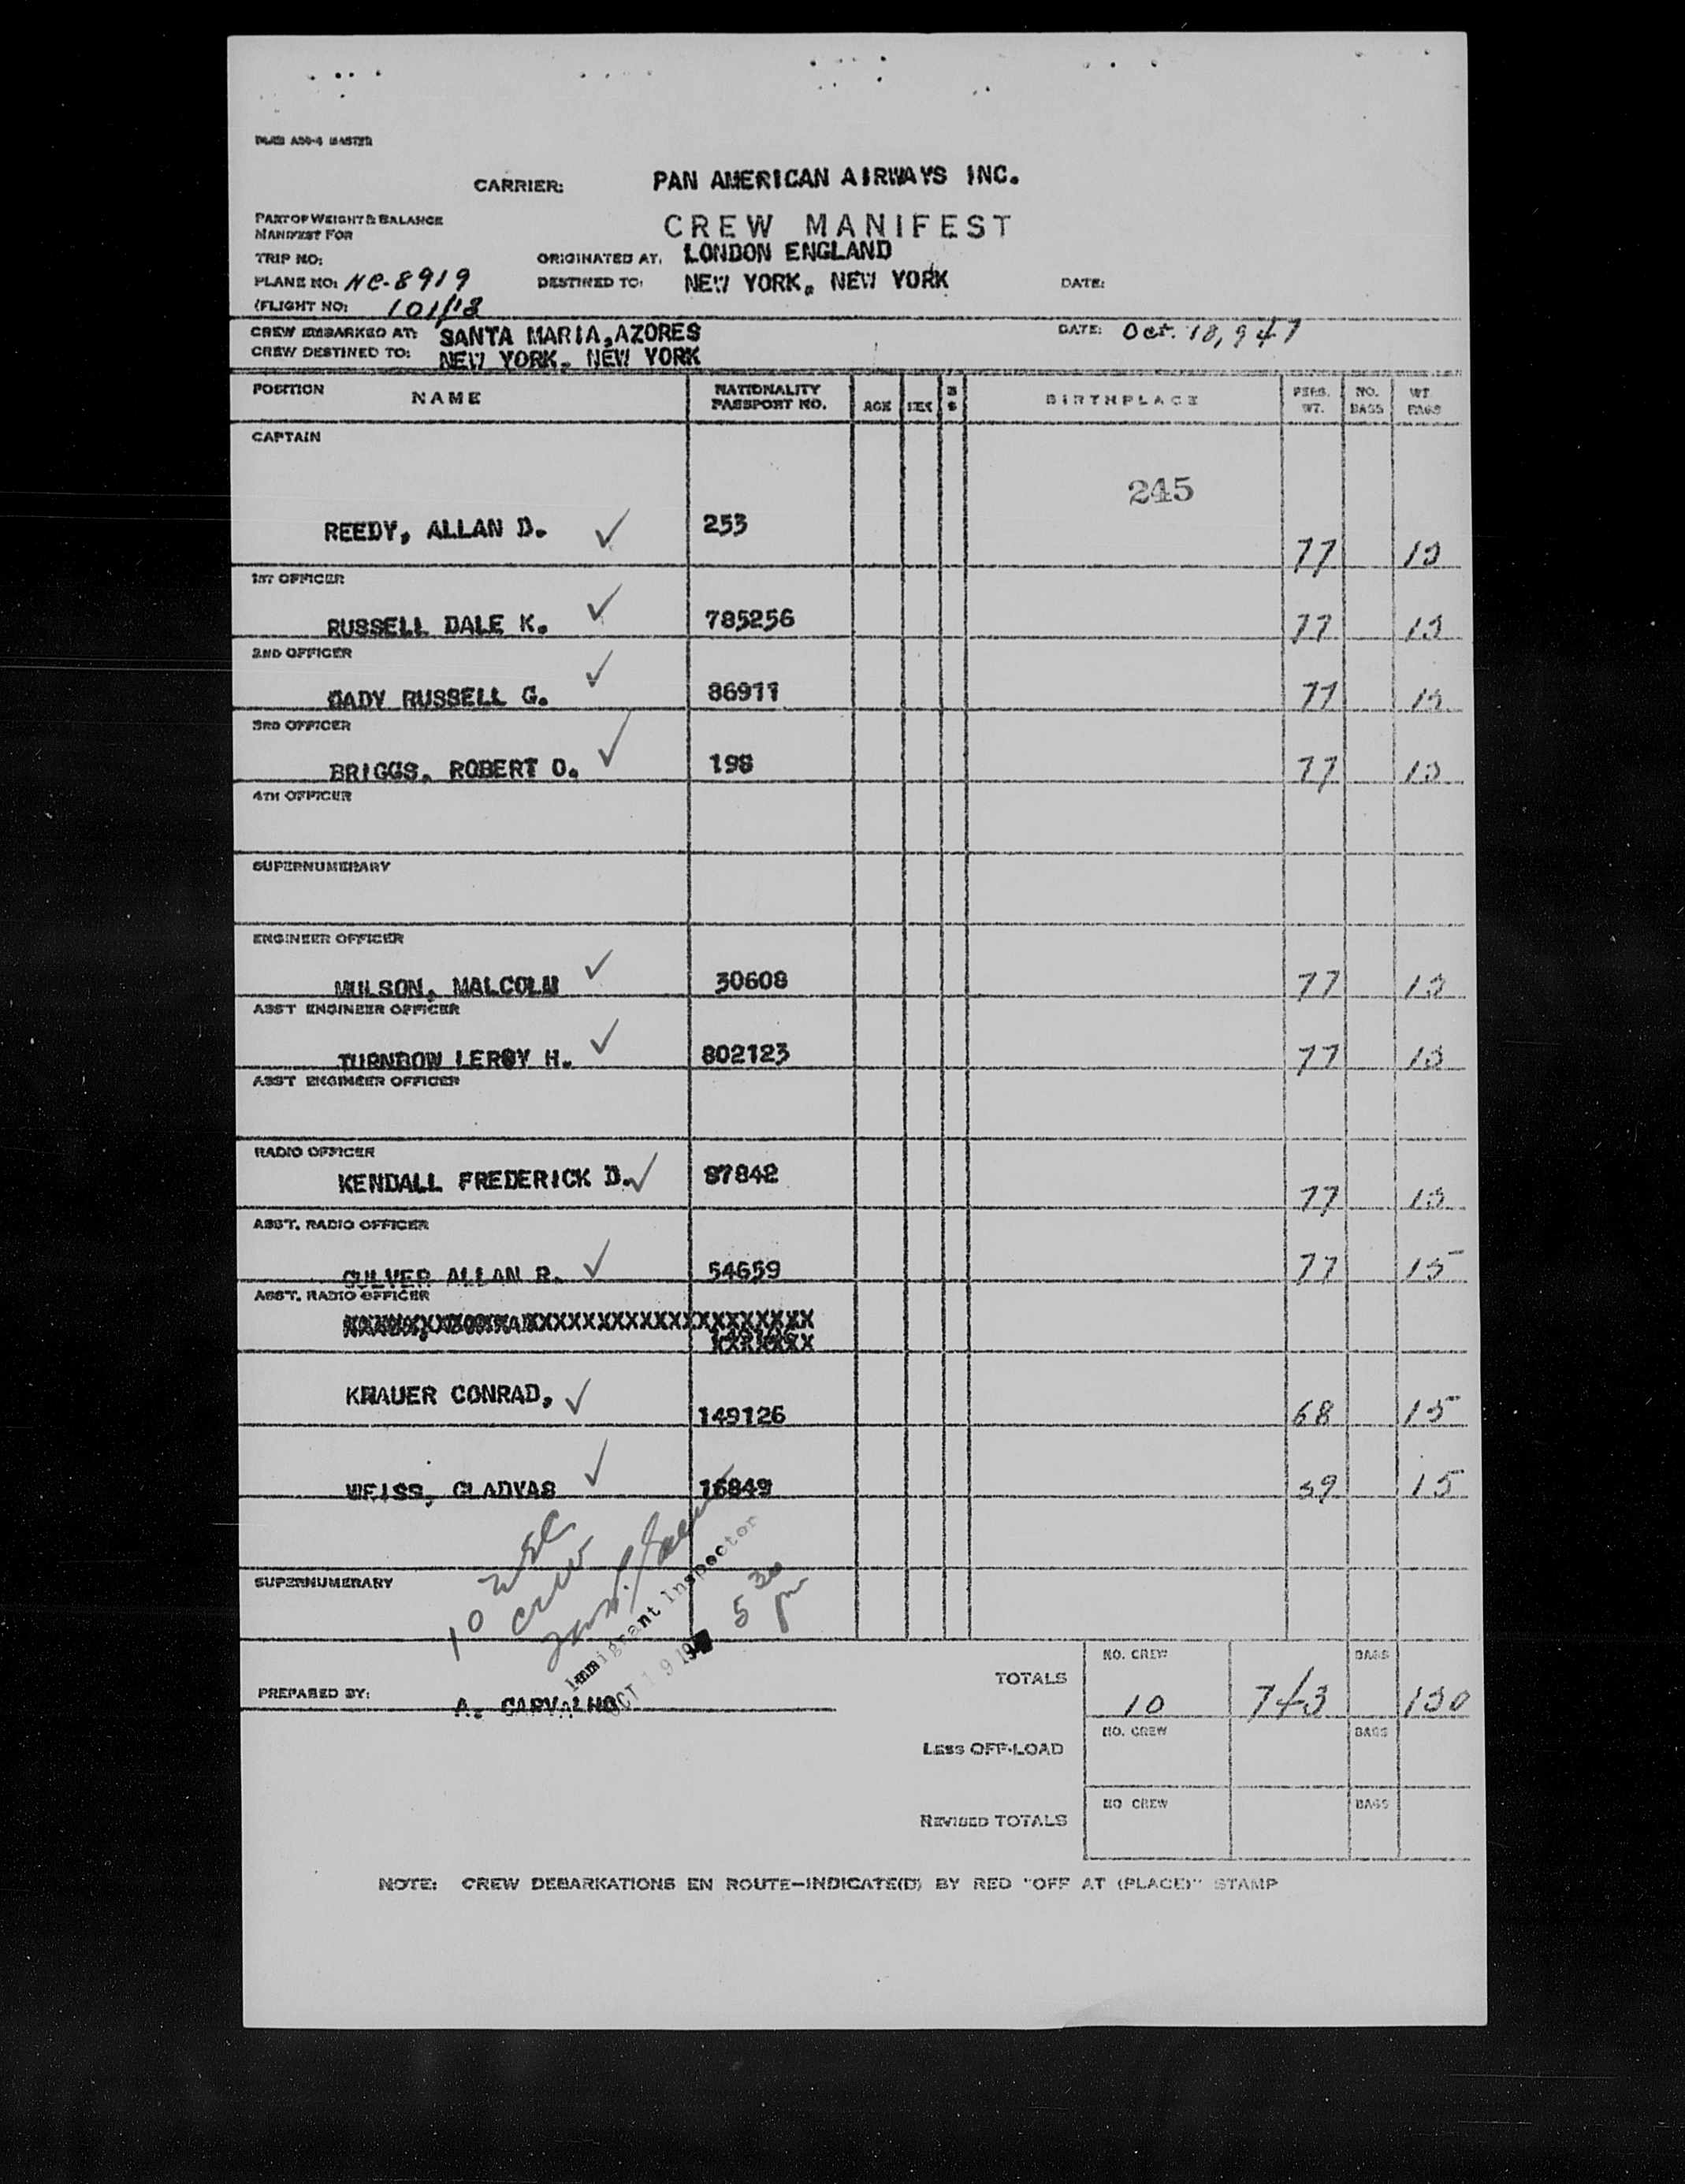 CARRIER: PAN AMERICAN AIRWAYS INC.
PART OF WEIGHT & BALANCE
MANIFEST FOR
CREW MANIFEST
TRIP NO: ORIGINATED AT: LONDON ENGLAND
PLANE NO: NC-8919 DESTINED TO: NEW YORK, NEW YORK DATE:
(FLIGHT NO: 101/18
CREW EMBARKED AT: SANTA MARIA, AZORES DATE: Oct. 18, 947
CREW DESTINED TO: NEW YORK, NEW YORK
POSITION NAME NATIONALITY PASSPORT NO. AGE SEX BIRTHPLACE PERS. WT. NO. BAGS WT BAGS
CAPTAIN
245
REEDY, ALLAN D. ✓ 253 77
1ST OFFICER
RUSSELL DALE K. ✓ 785256 77
2ND OFFICER
RUSSELL G. ✓ 86911 77
3RD OFFICER
BRIGGS, ROBERT O. ✓ 198 77
4TH OFFICER
SUPERNUMERARY
ENGINEER OFFICER
MULSON, MALCOLM ✓ 30608 77
ASST ENGINEER OFFICER
TURNBOW LEROY H. ✓ 802123 77
ASST ENGINEER OFFICER
RADIO OFFICER
KENDALL FREDERICK D. ✓ 87842 77
ASST. RADIO OFFICER
CULVER ALLAN R. ✓ 54659 77 15
ASST. RADIO OFFICER
KNAUER CONRAD, ✓ 149126 68 15
WEISS, GLADYAS ✓ 16849 59 15
10 USC
crew
Immigrant Inspector
5 30 pm
SUPERNUMERARY
OCT 19 194
TOTALS NO. CREW 10 743 BAGS 130
PREPARED BY: A. CARVALHO
LESS OFF-LOAD NO. CREW BAGS
REVISED TOTALS NO CREW BAGS
NOTE: CREW DEBARKATIONS EN ROUTE—INDICATE(D) BY RED "OFF AT (PLACE)" STAMP